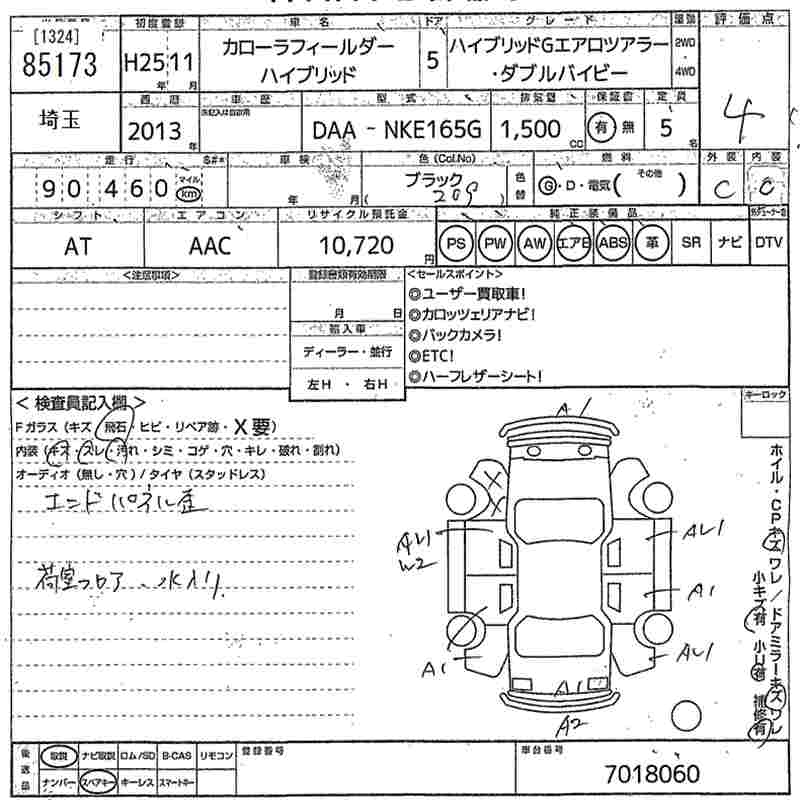 初度登録 車名 ドア グレード 駆動 評価点
[1324]
85173 H25 11 カローラフィールダー 5 ハイブリッドGエアロツアラー 2WD
年 月 ハイブリッド ・ダブルバイビー 4WD
4
埼玉 西暦 車歴 型式 排気量 保証書 定員
2013 年 DAA - NKE165G 1,500 CC 有 無 5 名
走行 車検 色(Col.No) 燃料 外装 内装
90460 マイル km 年 月 ブラック 色替 G・D・電気( その他 ) C C
( 209 )
シフト エアコン リサイクル預託金 純正装備品
AT AAC 10,720 円 PS PW AW エアB ABS 革 SR ナビ DTV
<注意事項> 登録書類有効期限 <セールスポイント>
◎ユーザー買取車!
月 日 ◎カロッツェリアナビ!
輸入車 ◎バックカメラ!
ディーラー・並行 ◎ETC!
左H ・ 右H ◎ハーフレザーシート!
<検査員記入欄> キーロック
Fガラス(キズ・飛石・ヒビ・リペア跡・X要)
内装(キズ・スレ・汚れ・シミ・コゲ・穴・キレ・破れ・割れ)
オーディオ(無し・穴)/タイヤ(スタッドレス)
エンドパネル歪
荷室フロア、水入り
A1
X
X
AU1
W2
AU1
A1
A1
AU1
A1
A2
ホイル・CPキズワレ/ドアミラーキズワレ
小キズ有 小U有 補修有
後送品 取説 ナビ取説 ロム/SD B-CAS リモコン 登録番号 車台番号
ナンバー スペアキー キーレス スマートキー 7018060